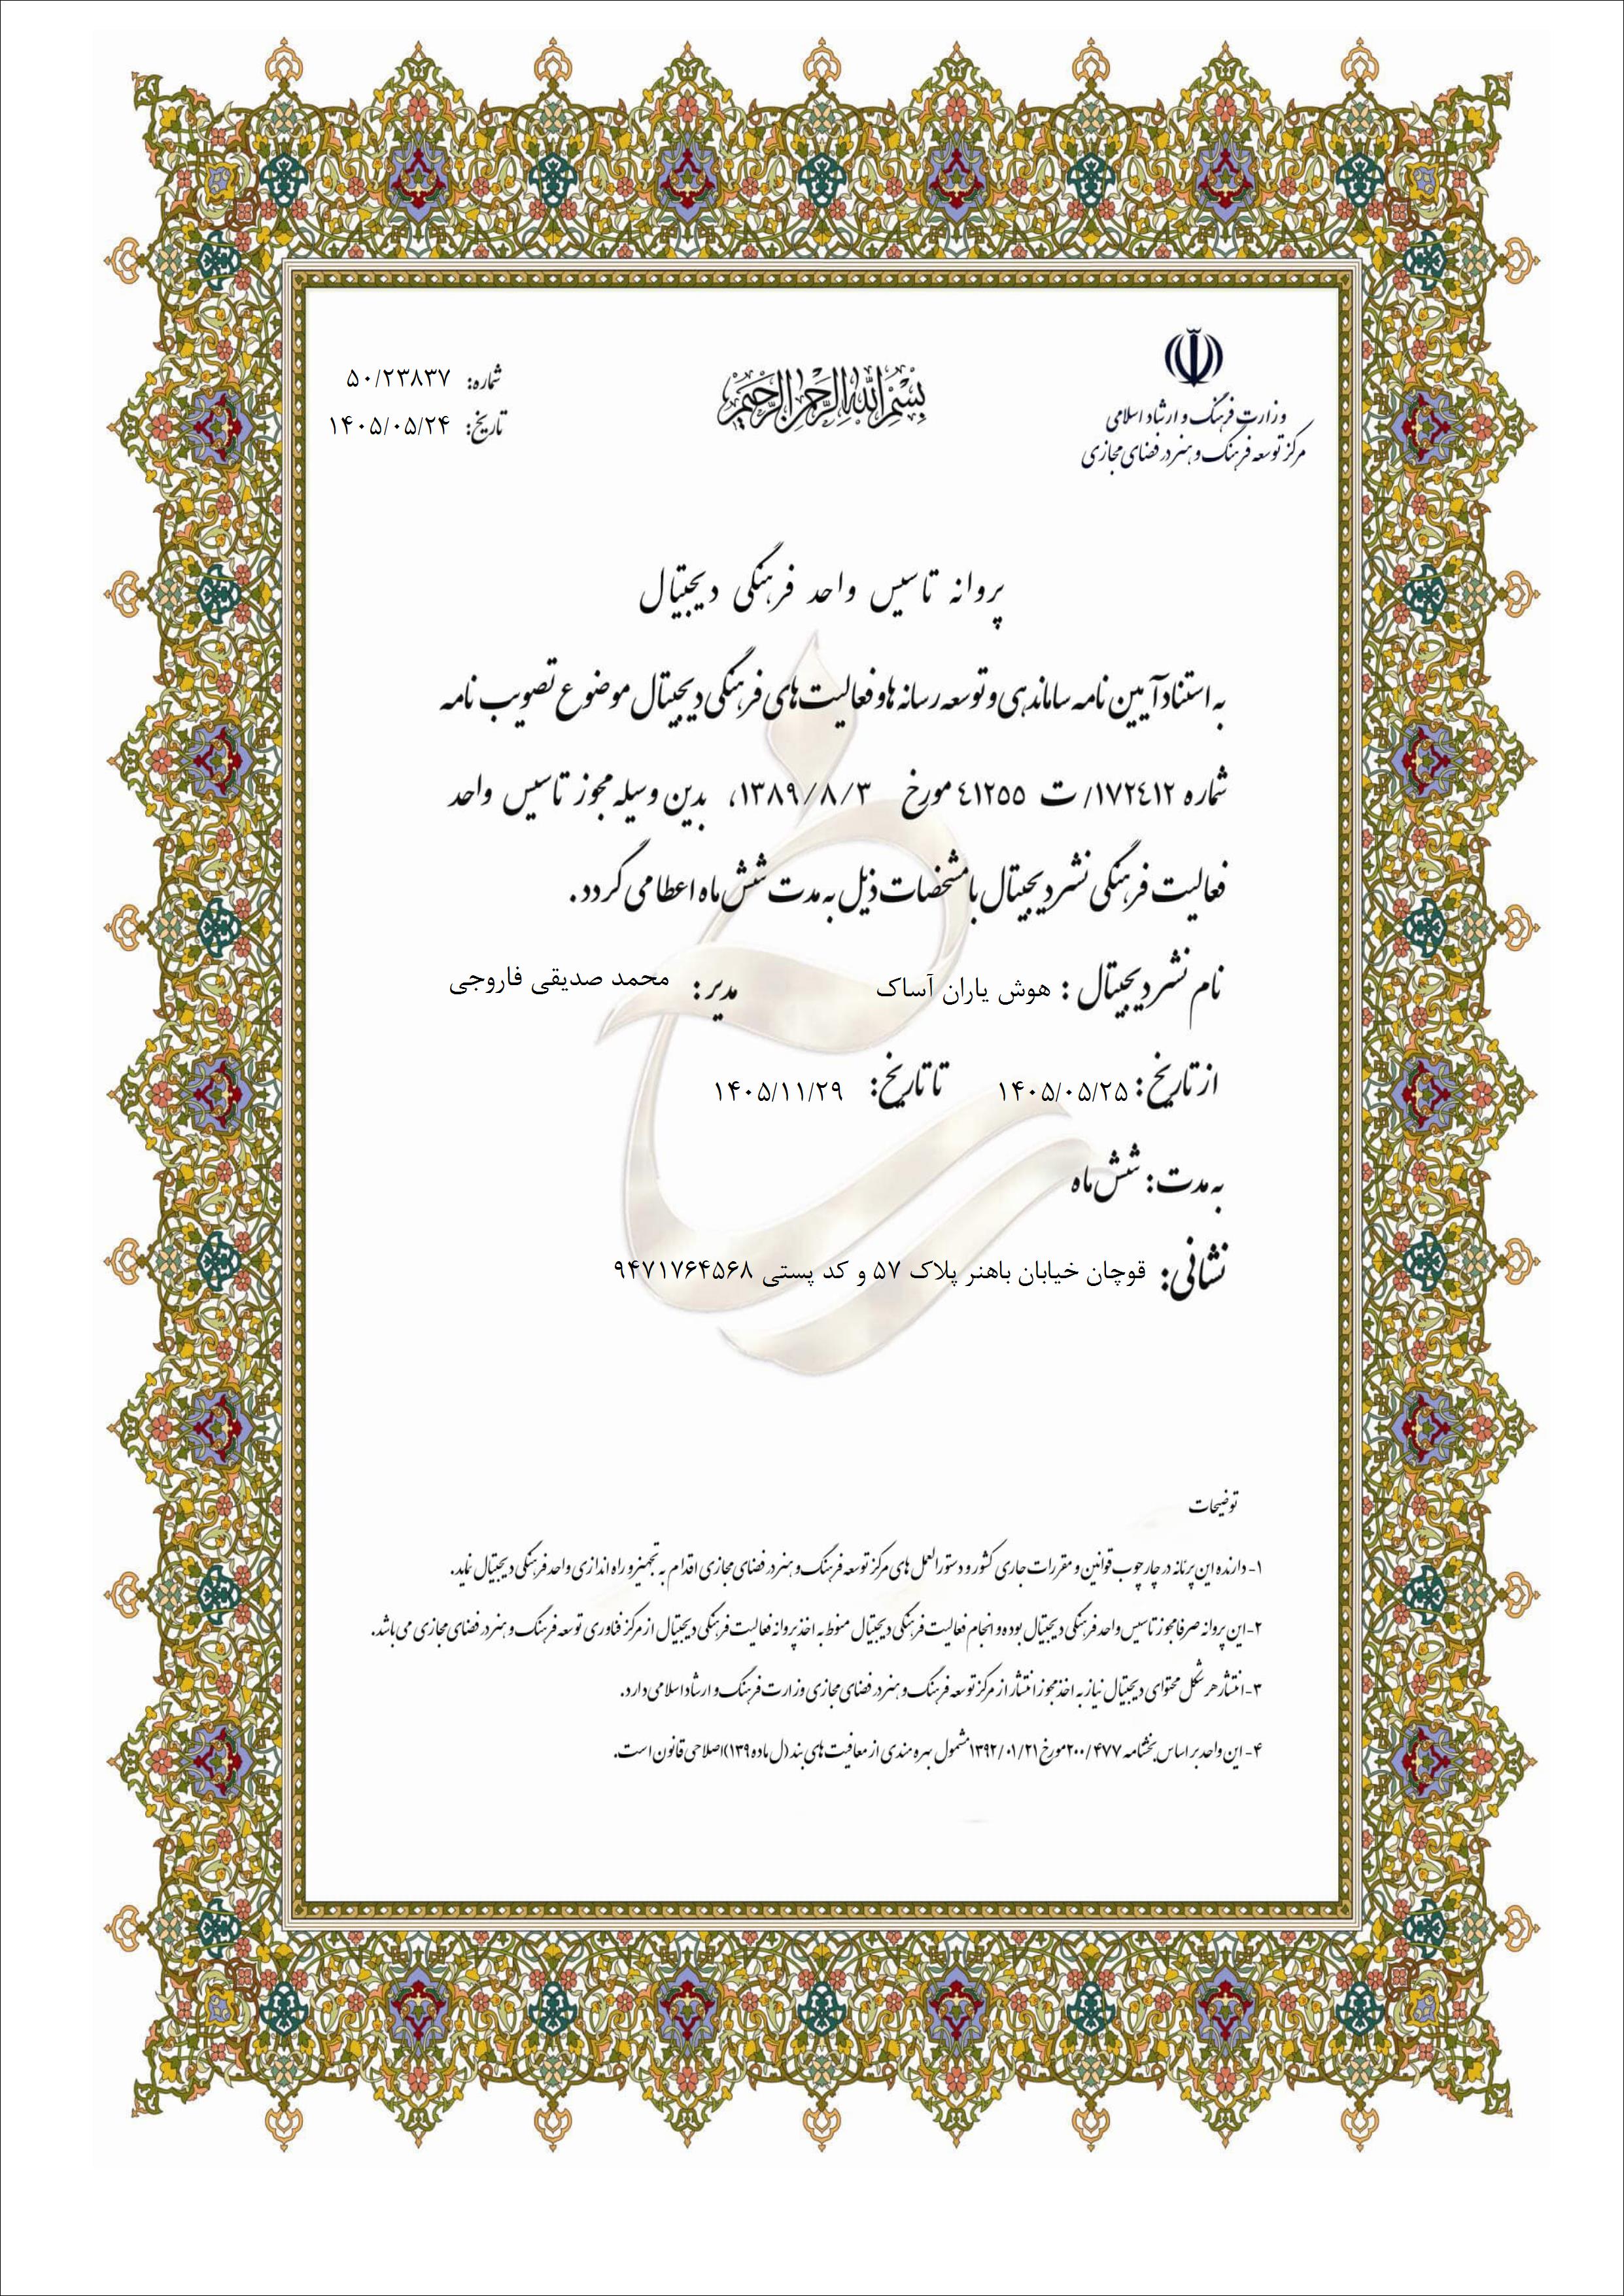 وزارت فرهنگ و ارشاد اسلامی
مرکز توسعه فرهنگ و هنر در فضای مجازی
بسم الله الرحمن الرحیم
شماره: ۵۰/۲۳۸۳۷
تاریخ: ۱۴۰۵/۰۵/۲۴
پروانه تاسیس واحد فرهنگی دیجیتال
به استناد آیین نامه ساماندهی و توسعه رسانه ها و فعالیت های فرهنگی دیجیتال موضوع تصویب نامه
شماره ۱۷۲٤۱۲/ ت ٤۱۲۵۵ مورخ ۱۳۸۹/۸/۳، بدین وسیله مجوز تاسیس واحد
فعالیت فرهنگی نشر دیجیتال با مشخصات ذیل به مدت شش ماه اعطا می گردد.
نام نشر دیجیتال : هوش یاران آساک مدیر: محمد صدیقی فاروجی
از تاریخ: ۱۴۰۵/۰۵/۲۵ تا تاریخ: ۱۴۰۵/۱۱/۲۹
به مدت: شش ماه
نشانی: قوچان خیابان باهنر پلاک ۵۷ و کد پستی ۹۴۷۱۷۶۴۵۶۸
توضیحات
۱- دارنده این در چارچوب قوانین و مقررات جاری کشور و دستورالعمل های مرکز توسعه فرهنگ و هنر در فضای مجازی اقدام به تجهیز و راه اندازی واحد فرهنگی دیجیتال نماید.
۲- این پروانه صرفا مجوز تاسیس واحد فرهنگی دیجیتال بوده و انجام فعالیت فرهنگی دیجیتال منوط به اخذ پروانه فعالیت فرهنگی دیجیتال از مرکز فناوری توسعه فرهنگ و هنر در فضای مجازی می باشد.
۳- انتشار هر شکل محتوای دیجیتال نیاز به اخذ مجوز انتشار از مرکز توسعه فرهنگ و هنر در فضای مجازی وزارت فرهنگ و ارشاد اسلامی دارد.
۴- این واحد بر اساس بخشنامه ۲۰۰/۴۷۷ مورخ ۱۳۹۲/۰۱/۲۱ مشمول بهره مندی از معافیت های بند (ل ماده ۱۳۹) اصلاحی قانون است.